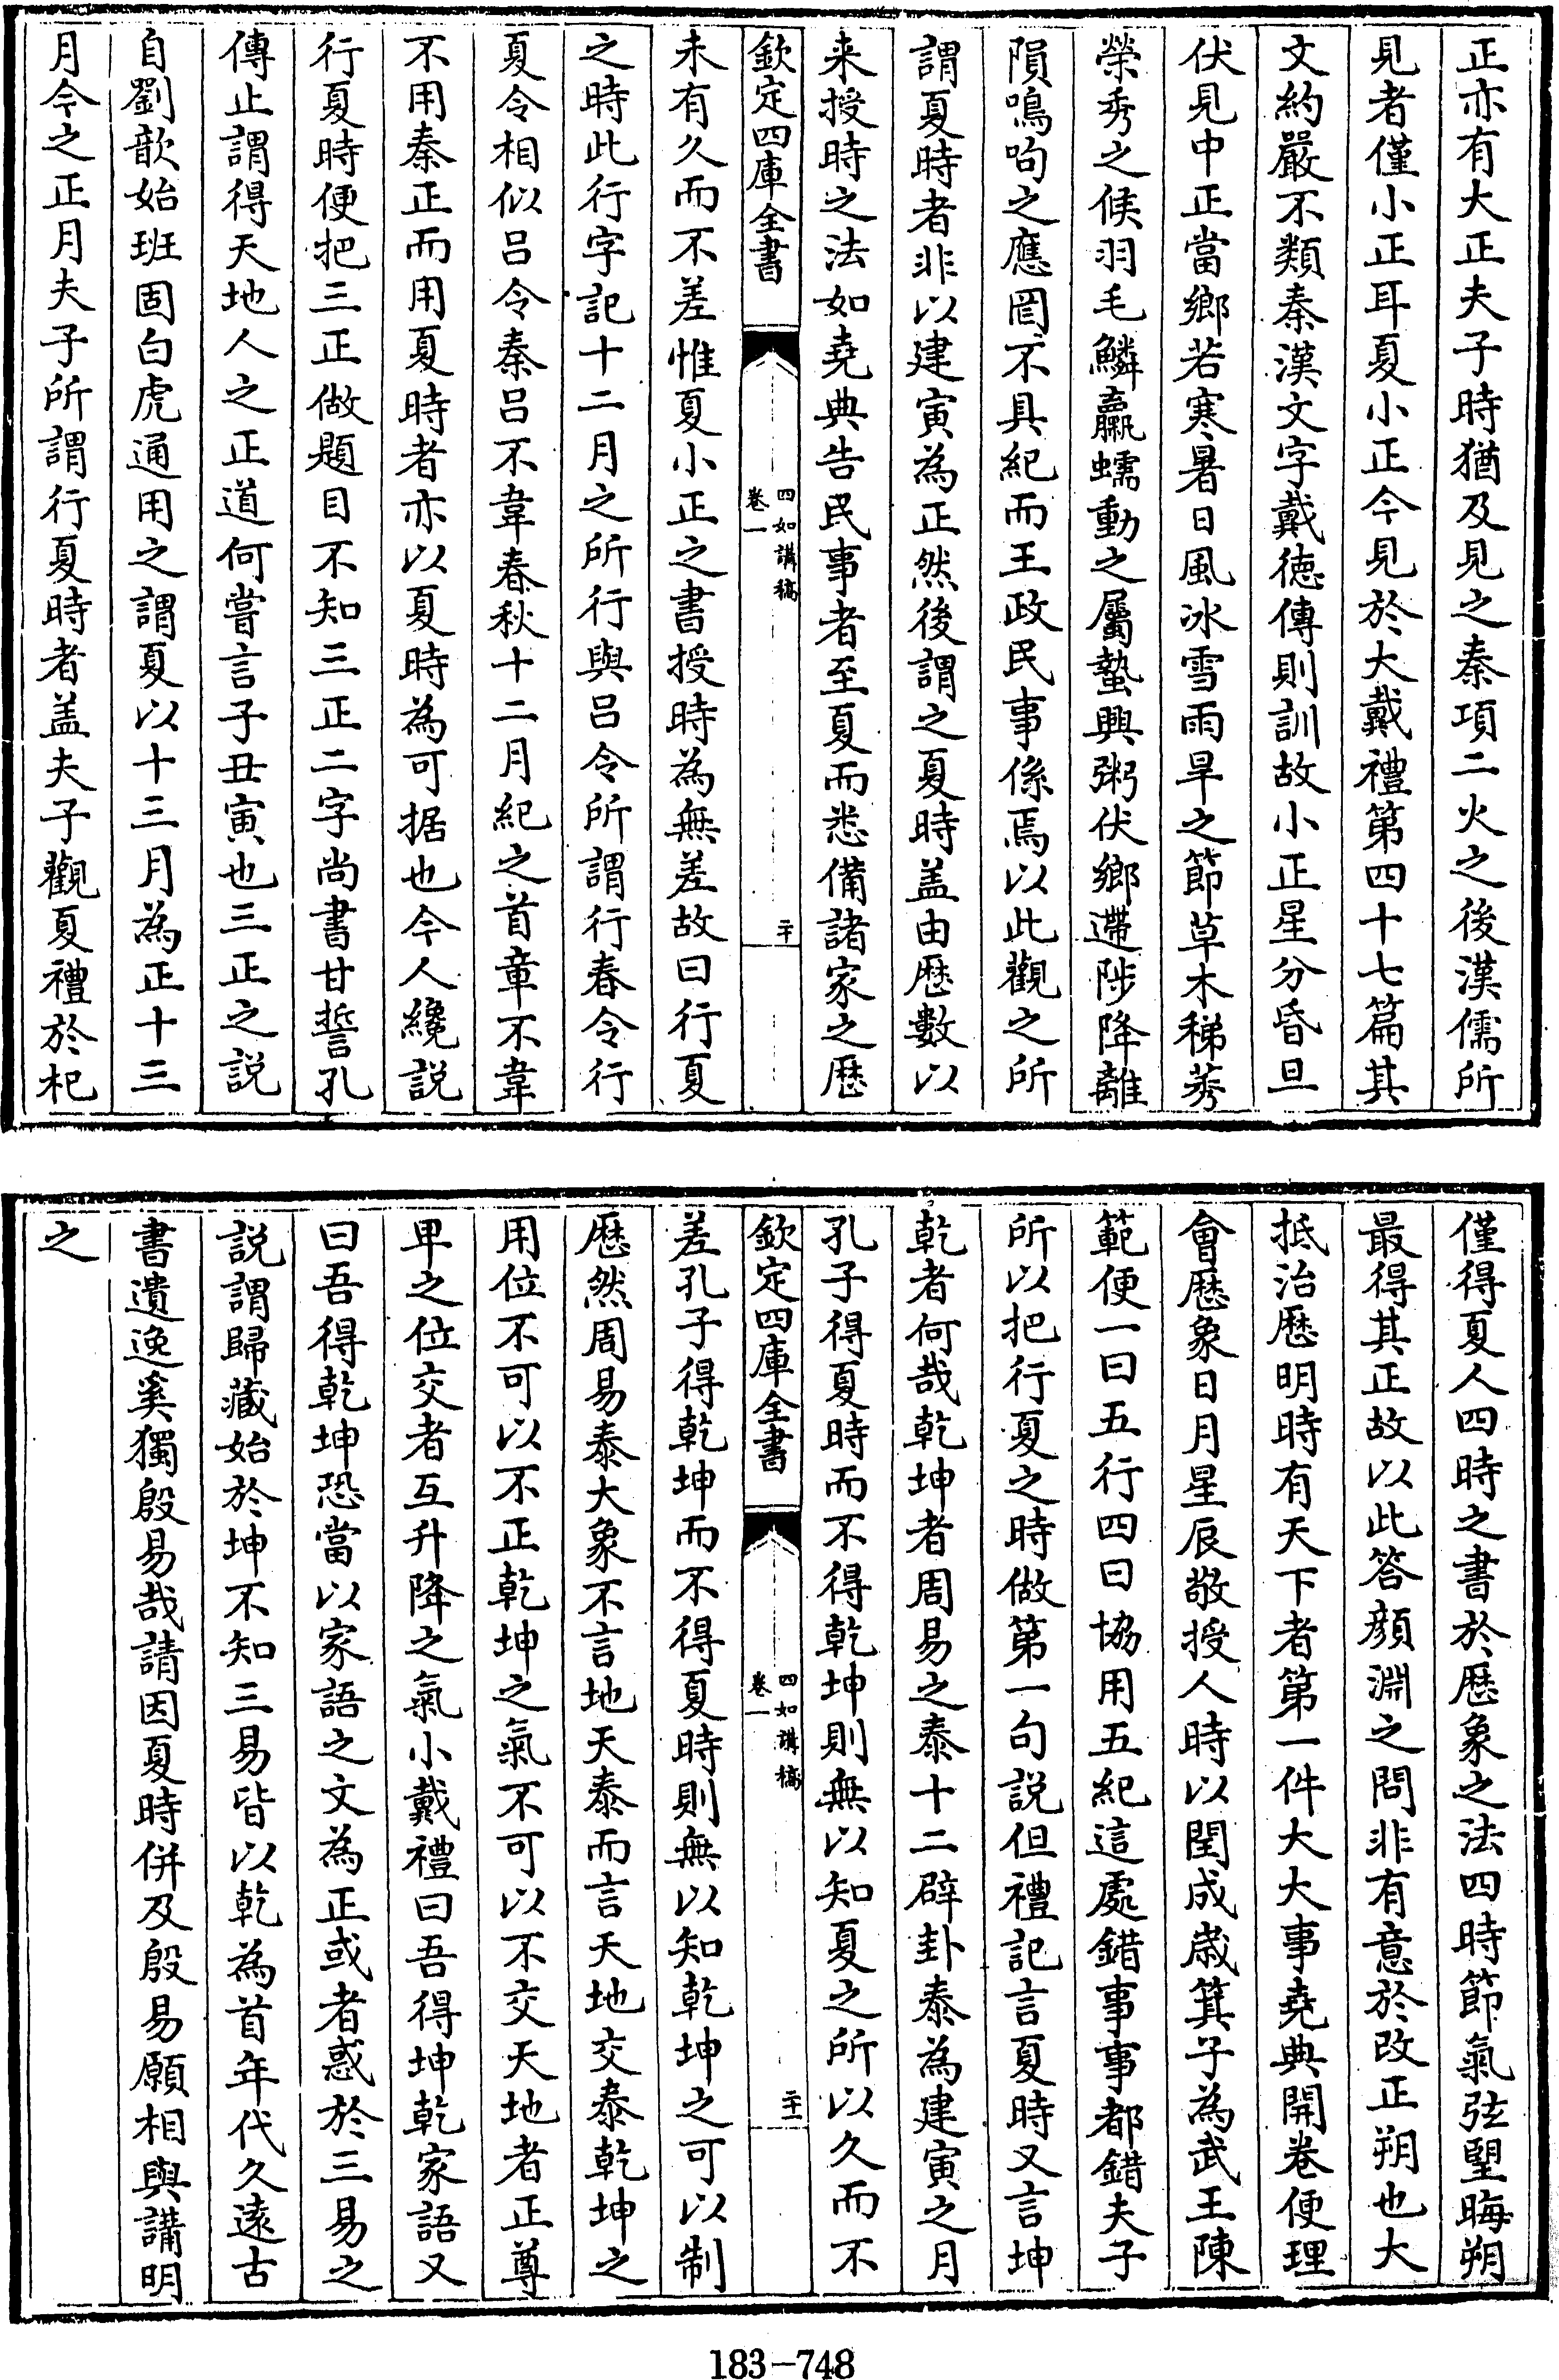 正亦有大正夫子時猶及見之秦項二火之後漢儒所
見者僅小正耳夏小正今見於大戴禮第四十七篇其
文約嚴不類秦漢文字戴徳傳則訓故小正星分昏旦
伏見中正當鄉若寒暑日風冰雪雨旱之節草木稊莠
榮秀之候羽毛鱗蠃蠕動之屬蟄興粥伏鄉遰陟降離
隕鳴呴之應罔不具紀而王政民事係焉以此觀之所
謂夏時者非以建寅為正然後謂之夏時盖由厯數以
来授時之法如堯典告民事者至夏而悉備諸家之厯
欽定四庫全書
四如講稿
卷一
二十
未有久而不差惟夏小正之書授時為無差故曰行夏
之時此行字記十二月之所行與呂令所謂行春令行
夏令相似呂令秦呂不韋春秋十二月紀之首章不韋
不用秦正而用夏時者亦以夏時為可据也今人纔説
行夏時便把三正做題目不知三正二字尚書甘誓孔
傳止謂得天地人之正道何嘗言子丑寅也三正之説
自劉歆始班固白虎通用之謂夏以十三月為正十三
月今之正月夫子所謂行夏時者盖夫子觀夏禮於杞
僅得夏人四時之書於厯象之法四時節氣弦望晦朔
最得其正故以此答顔淵之問非有意於改正朔也大
抵治厯明時有天下者第一件大大事堯典開卷便理
會厯象日月星辰敬授人時以閏成嵗箕子為武王陳
範便一曰五行四曰協用五紀這處錯事事都錯夫子
所以把行夏之時做第一句説但禮記言夏時又言坤
乾者何哉乾坤者周易之泰十二辟卦泰為建寅之月
孔子得夏時而不得乾坤則無以知夏之所以久而不
欽定四庫全書
四如講稿
卷一
二十一
差孔子得乾坤而不得夏時則無以知乾坤之可以制
厯然周易泰大象不言地天泰而言天地交泰乾坤之
用位不可以不正乾坤之氣不可以不交天地者正尊
卑之位交者互升降之氣小戴禮曰吾得坤乾家語又
曰吾得乾坤恐當以家語之文為正或者惑於三易之
説謂歸藏始於坤不知三易皆以乾為首年代久遠古
書遺逸奚獨殷易哉請因夏時併及殷易願相與講明
之
183-748